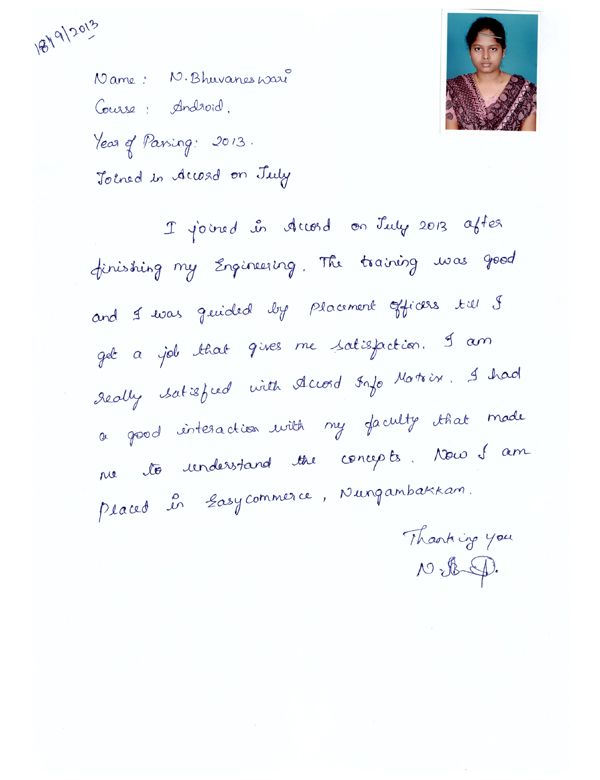 18/9/2013
Name : N. Bhuvaneswari
Course : Android.
Year of Passing: 2013.
Joined in Accord on July
I joined in Accord on July 2013 after
finishing my Engineering. The training was good
and I was guided by placement officers till I
get a job that gives me satisfaction. I am
really satisfied with Accord Info Matrix. I had
a good interaction with my faculty that made
me to understand the concepts. Now I am
placed in Easycommerce, Nungambakkam.
Thanking you